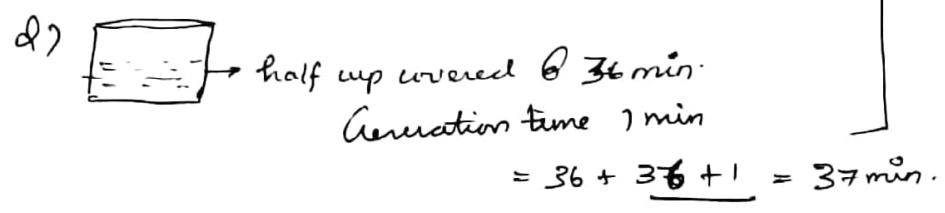 Q)
half cup covered @ 36 min.
Generation time 1 min
= 36 + 36 + 1 = 37 min.